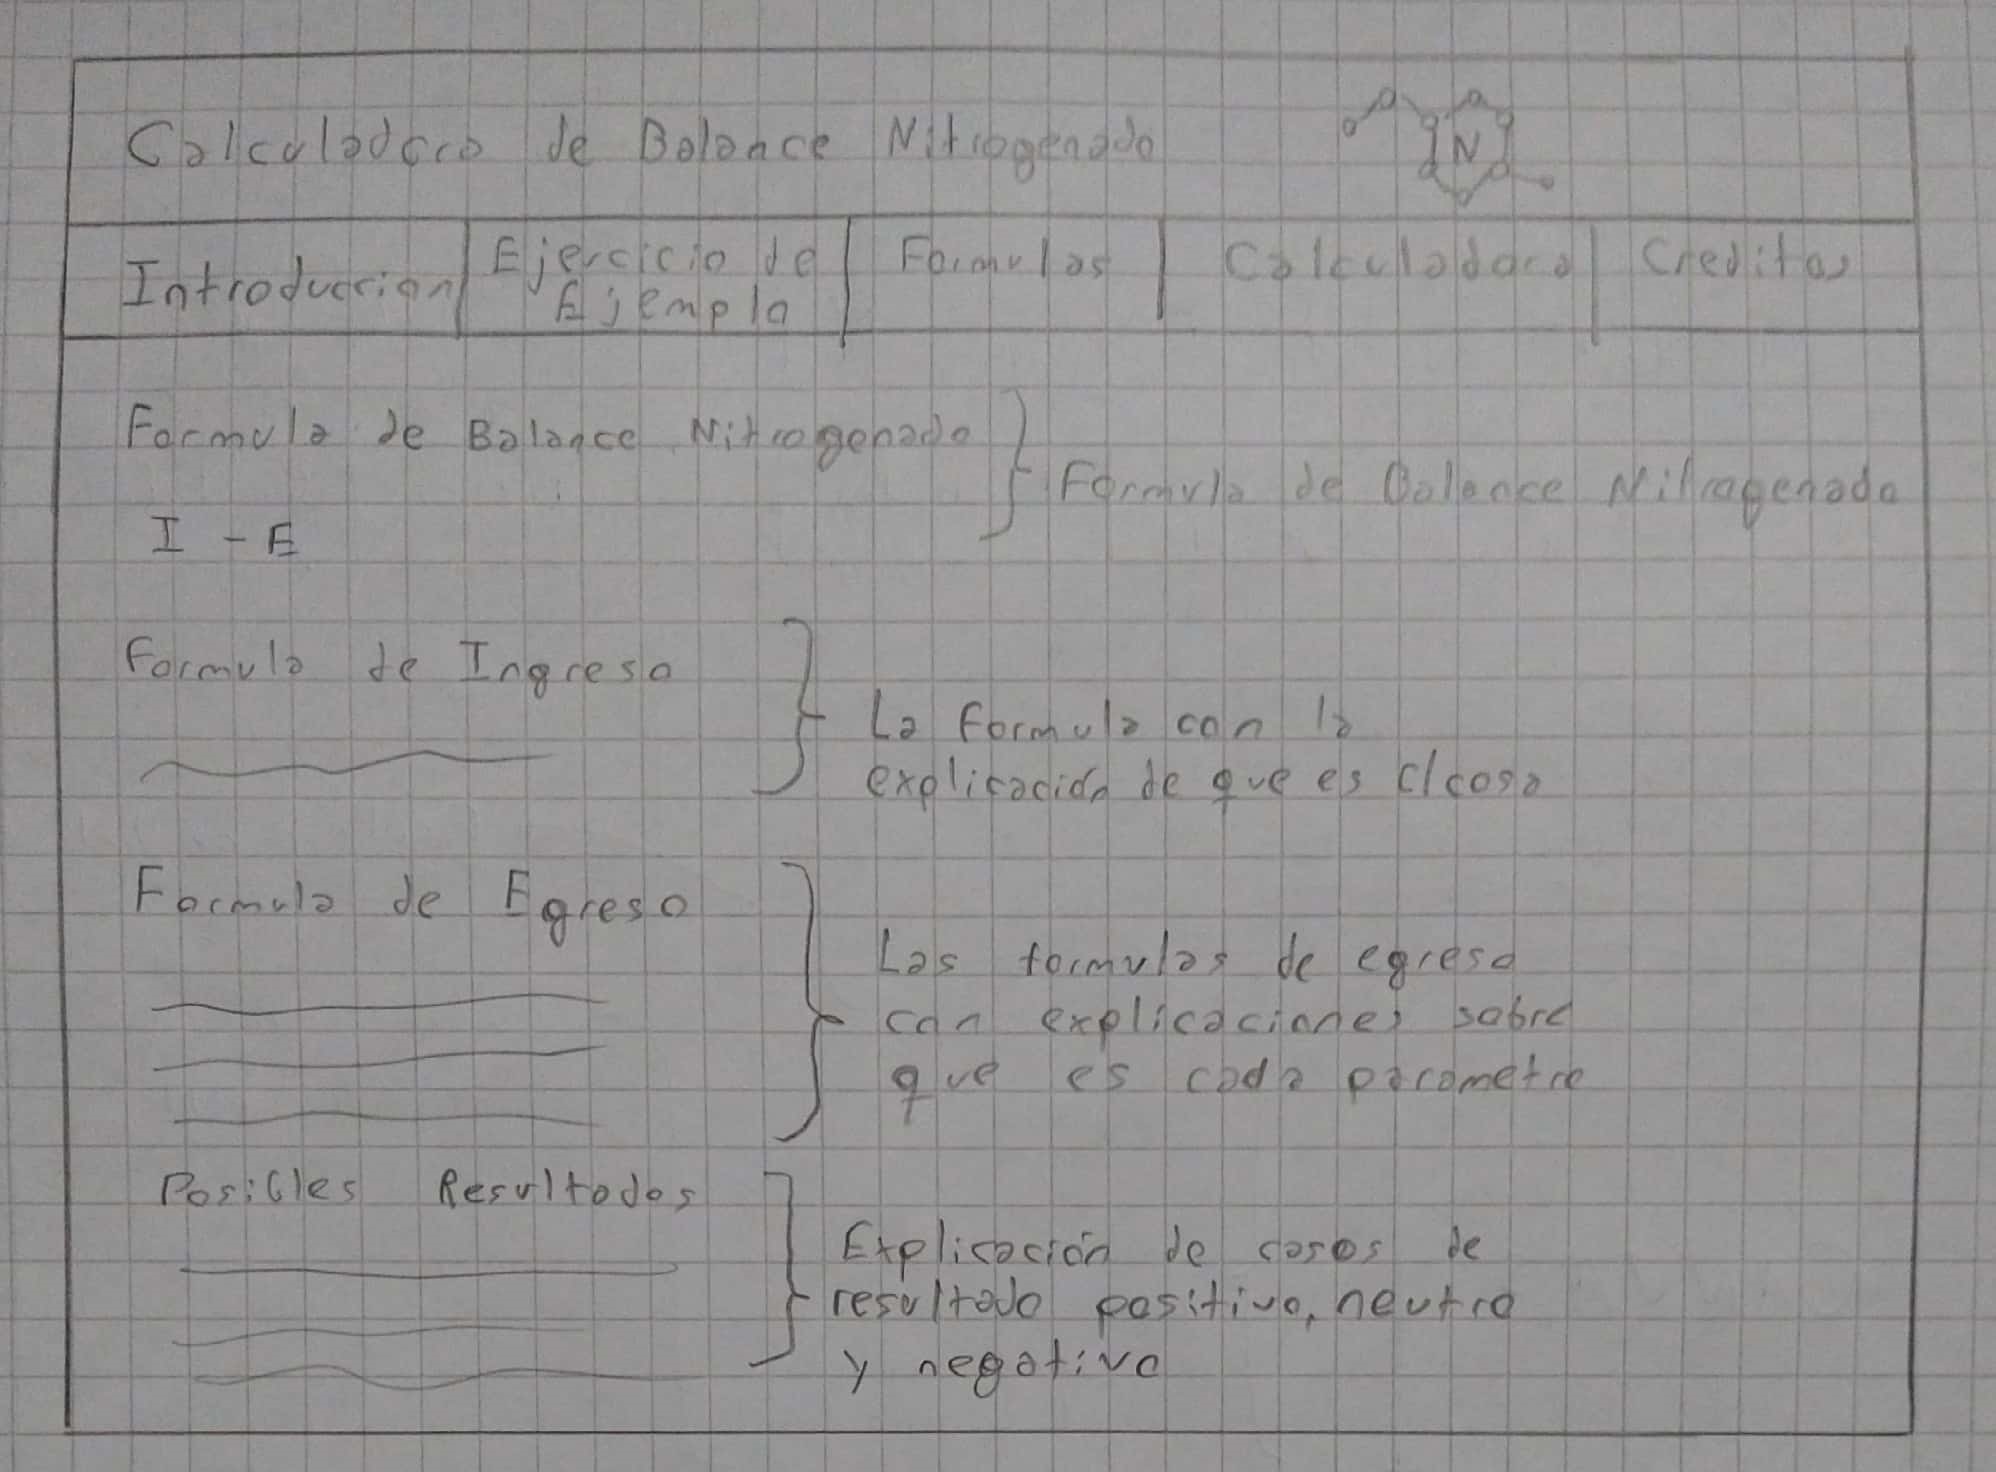 Calculadora de Balance Nitrogenado
N
Introduccion
Ejercicio de
Ejemplo
Formulas
Calculadora
Creditos
Formula de Balance Nitrogenado
I - E
Formula de Balance Nitrogenado
Formula de Ingreso
La formula con la
explicación de que es c/cosa
Formula de Egreso
Las formulas de egreso
con explicaciones sobre
que es cada parametro
Posibles Resultados
Explicación de casos de
resultado positivo, neutro
y negativo